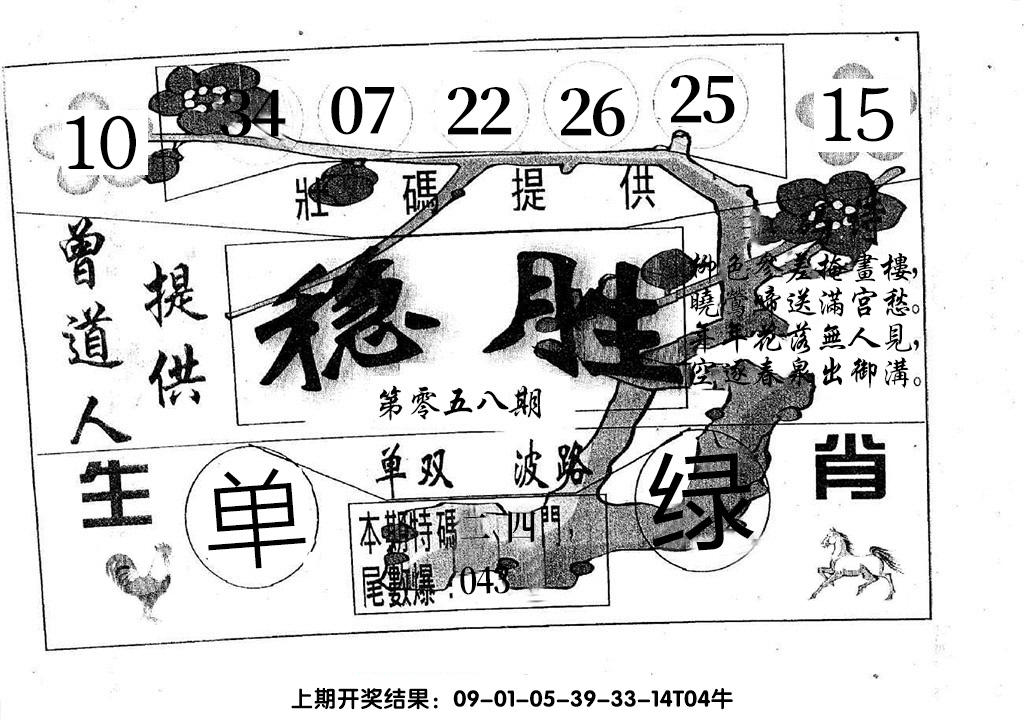 10 34 07 22 26 25 15
壯碼提供
曾道人
提供
稳胜
第零五八期
特
柳色參差掩畫樓，
曉鶯啼送滿宮愁。
年年花落無人見，
空逐春泉出御溝。
单双 波路
生肖
单
绿
本期特碼二、四門，
尾數爆：043
上期开奖结果：09-01-05-39-33-14T04牛